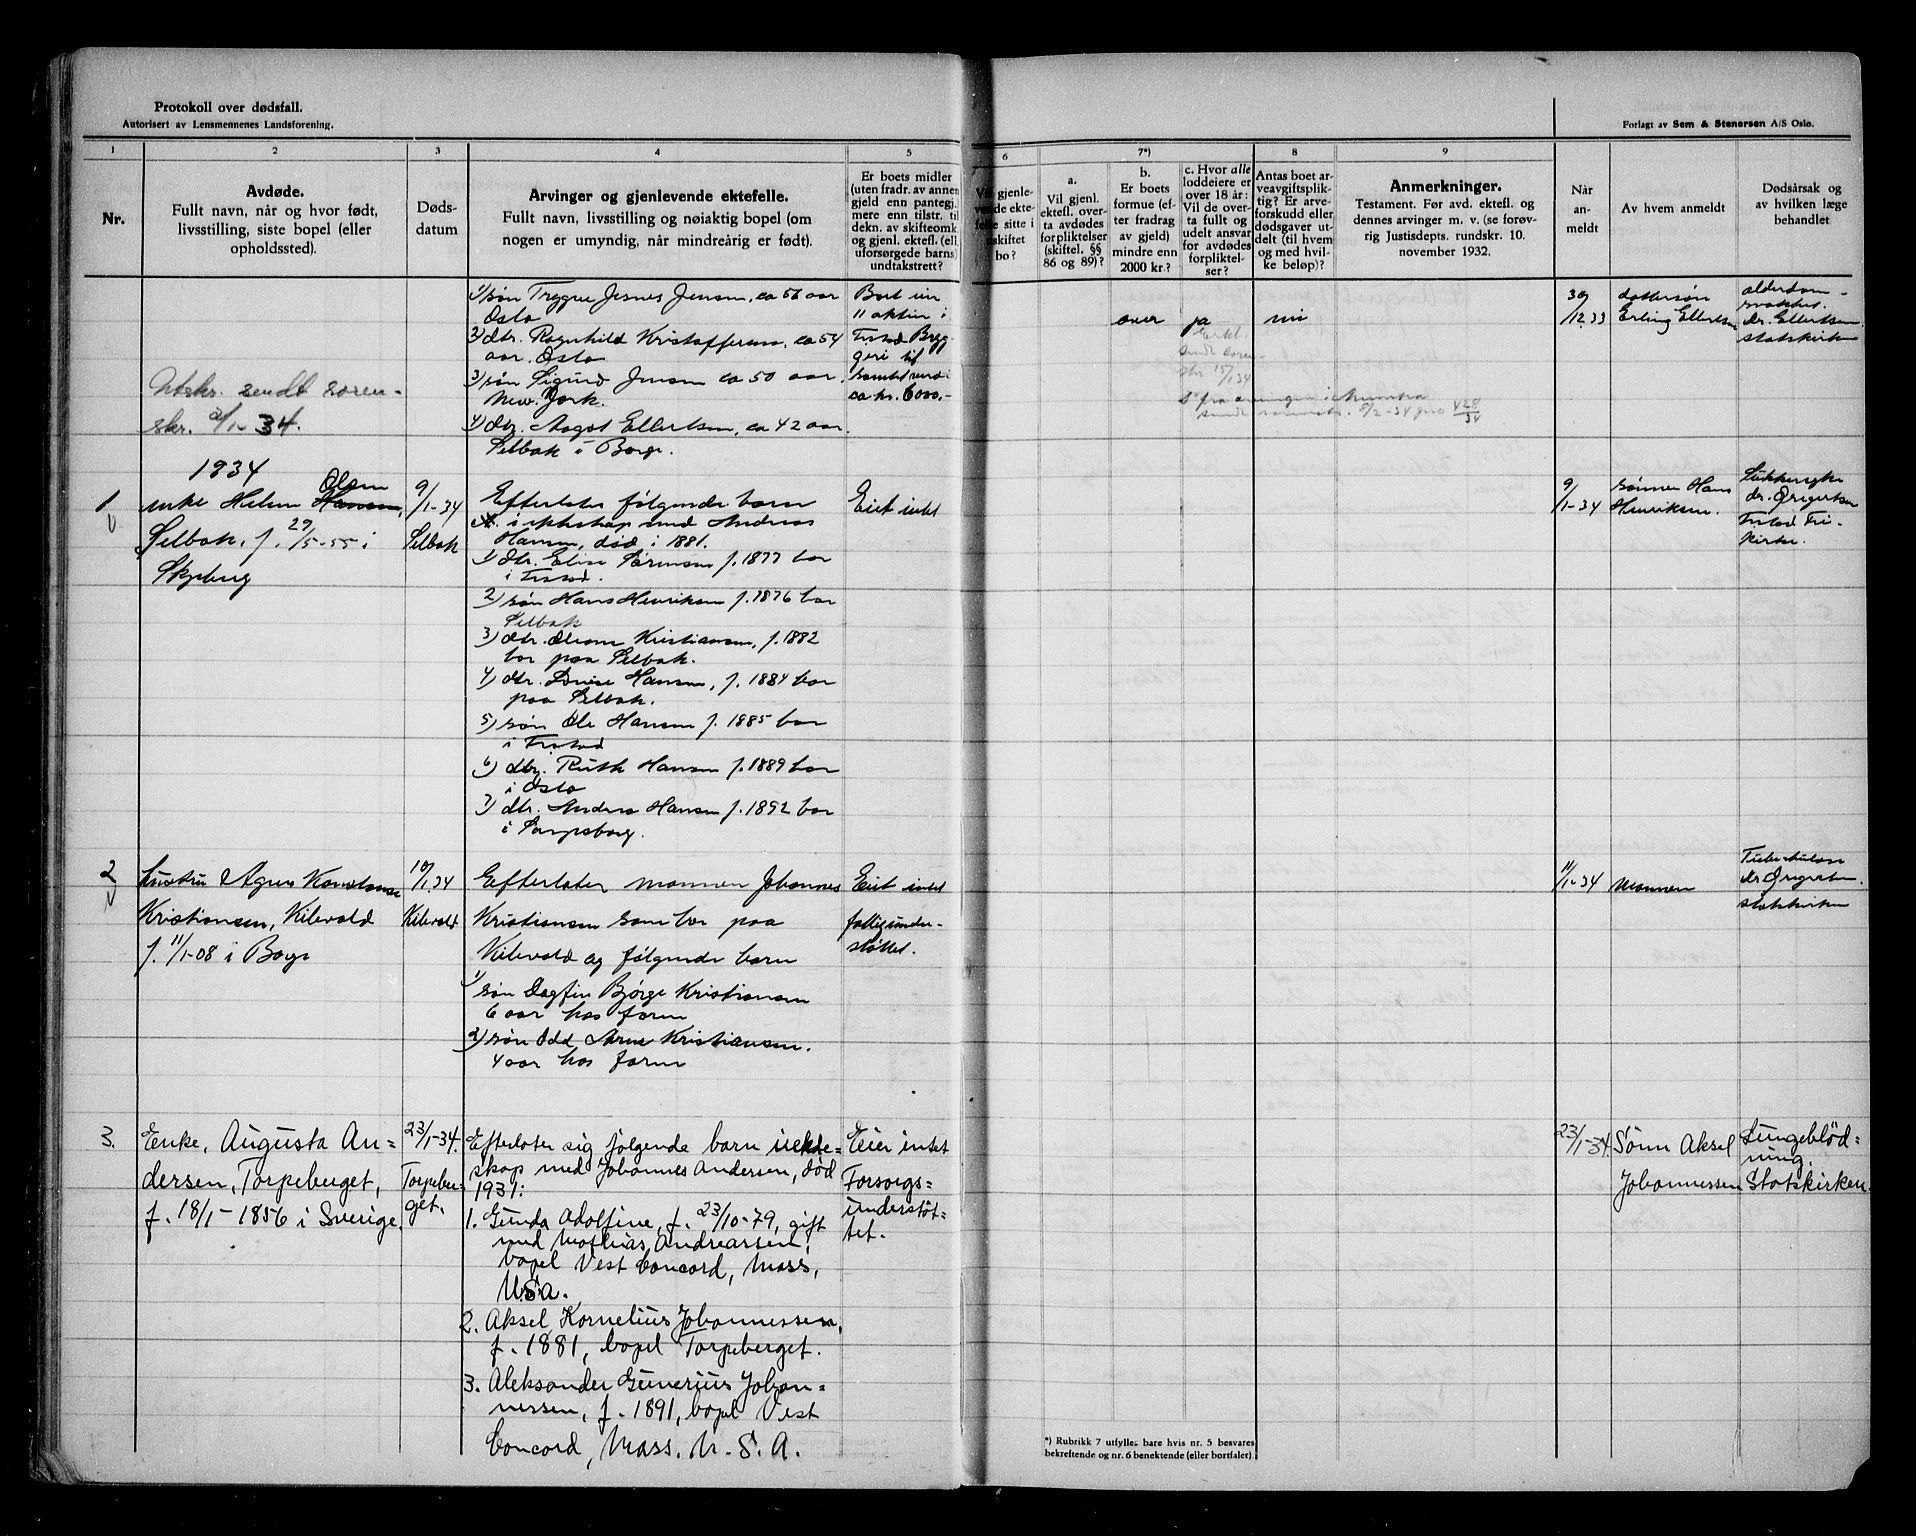 Protokoll over dødsfall.
Autorisert av Lensmennenes Landsforening.
Forlagt av Sem & Stenersen A/S Oslo.
1
2
3
4
5
6
7*)
8
9
Nr.
Avdøde.
Fullt navn, når og hvor født,
livsstilling, siste bopel (eller
opholdssted).
Døds-
datum
Arvinger og gjenlevende ektefelle.
Fullt navn, livsstilling og nøiaktig bopel (om
nogen er umyndig, når mindreårig er født).
Er boets midler
(uten fradr. av annen
gjeld enn pantegj.
mere enn tilstr. til
dekn. av skifteomk.
og gjenl. ektef. (ell.
uforsørgede barns)
undtakstrett?
gjenle-
ekte-
sitte i
uskiftet
bo?
a.
Vil gjenl.
ektefl. over-
ta avdødes
forpliktelser
(skiftel. §§
86 og 89)?
b.
Er boets
formue (ef-
ter fradrag
av gjeld)
mindre enn
2000 kr.?
c. Hvor alle
loddeiere er
over 18 år:
Vil de over-
ta fullt og
udelt ansvar
for avdødes
forpliktel-
ser?
Antas boet ar-
veavgiftsplik-
tig? Er arve-
forskudd eller
dødsgaver ut-
delt (til hvem
og med hvil-
ke beløp)?
Anmerkninger.
Testament. Før avd. ektefl. og
dennes arvinger m. v. (se forøv-
rig Justisdepts. rundskr. 10.
november 1932.
Når
an-
meldt
Av hvem anmeldt
Dødsårsak og
av hvilken læge
behandlet
Utskr. sendt soren-
skr. 2/1-34.
1) søn Trygve Jesnes Jensen, ca 56 aar
Oslo
2) dtr. Ragnhild Kristoffersen, ca 54
aar. Oslo
3) søn Sigurd Jensen ca 50 aar.
New York.
4) dtr. Aagot Ellertsen, ca 42 aar.
Selbak i Borge.
11 aktier i
til
samlet verdi
ca kr. 6000,-
over
ja
nei
30/12 33
dattersøn
Erling Ellertsen
alderdom-
svakhet.
dr. Ellertsen
statskirken
1934
1
enke Helene Hansen, Olsen
Selbak, f. 29/5-55 i
Skjeberg
9/1-34
Selbak
Efterlater følgende barn
i ekteskap med Andreas
Hansen, død i 1881.
1) dtr. Elise Sørensen f. 1877 bor
i Fr.stad.
2) søn Hans Henriksen f. 1876 bor
Selbak
3) dtr. Kristiansen, f. 1882
bor paa Selbak.
4) dtr. Lovise Hansen, f. 1884 bor
paa Selbak.
5) søn Ole Hansen f. 1885 bor
i Fr.stad
6) dtr. Ruth Hansen f. 1889 bor
i Oslo
7) dtr. Andrea Hansen f. 1892 bor
i Sarpsborg.
Eiet intet
9/1-34
sønnen Hans
Henriksen.
dr. Gregertsen
Fr.stad Fri-
kirke.
2
hustru Agnes
Kristiansen, Kilevold
f. 11/1-08 i Borge
10/1 34
Kilevold
Efterlater mannen Johannes
Kristiansen som bor paa
Kilevold og følgende barn
1) søn Dagfin Bjørge Kristiansen
6 aar hos faren
2) søn Odd Arne Kristiansen.
4 aar hos faren
Eiet intet
fattigunder-
støttet.
11/1-34
Mannen
Tuberkulose
dr. Gregertsen.
statskirken
3.
Enke, Augusta An=
dersen, Torpeberget,
f. 18/1-1856 i Sverige.
23/1-34.
Torpeber-
get.
Efterlater sig følgende barn i ekte=
skap med Johannes Andersen, død
1931:
1. Gunda Adolfine, f. 23/10-79, gift
med Mathias Andreassen,
bopel Vest Concord, Mass,
USA.
2. Aksel Kornelius Johannessen,
f. 1881, bopel Torpeberget.
3. Aleksander Gunerius Johan=
nessen, f. 1891, bopel Vest
Concord, Mass. U. S. A.
Eier intet
Forsorgs=
understøt-
tet.
23/1-34.
Sønn Aksel
Johannessen
Lungeblød=
ning.
Statskirken.
*) Rubrikk 7 utfylles bare hvis nr. 5 besvares
bekreftende og nr. 6 benektende (eller bortfaler)